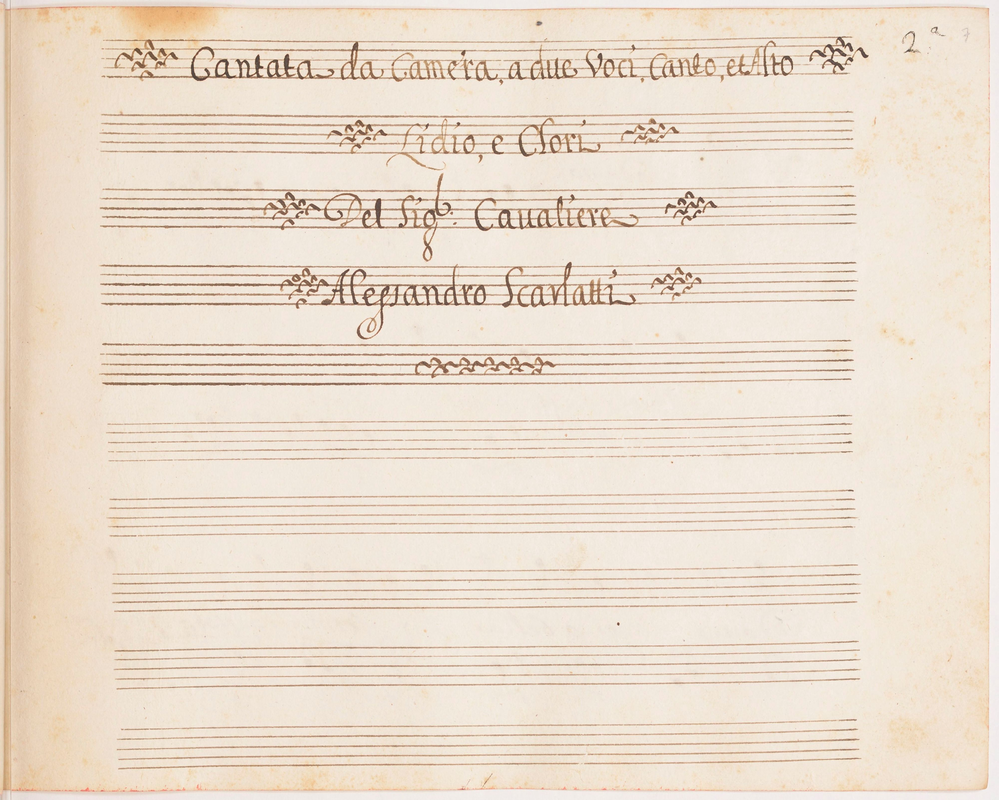 2.ª 7
Cantata da Camera, a due Voci, Canto, et Alto
Lidio, e Clori
Del Sig.r Caualiere
Alessandro Scarlatti